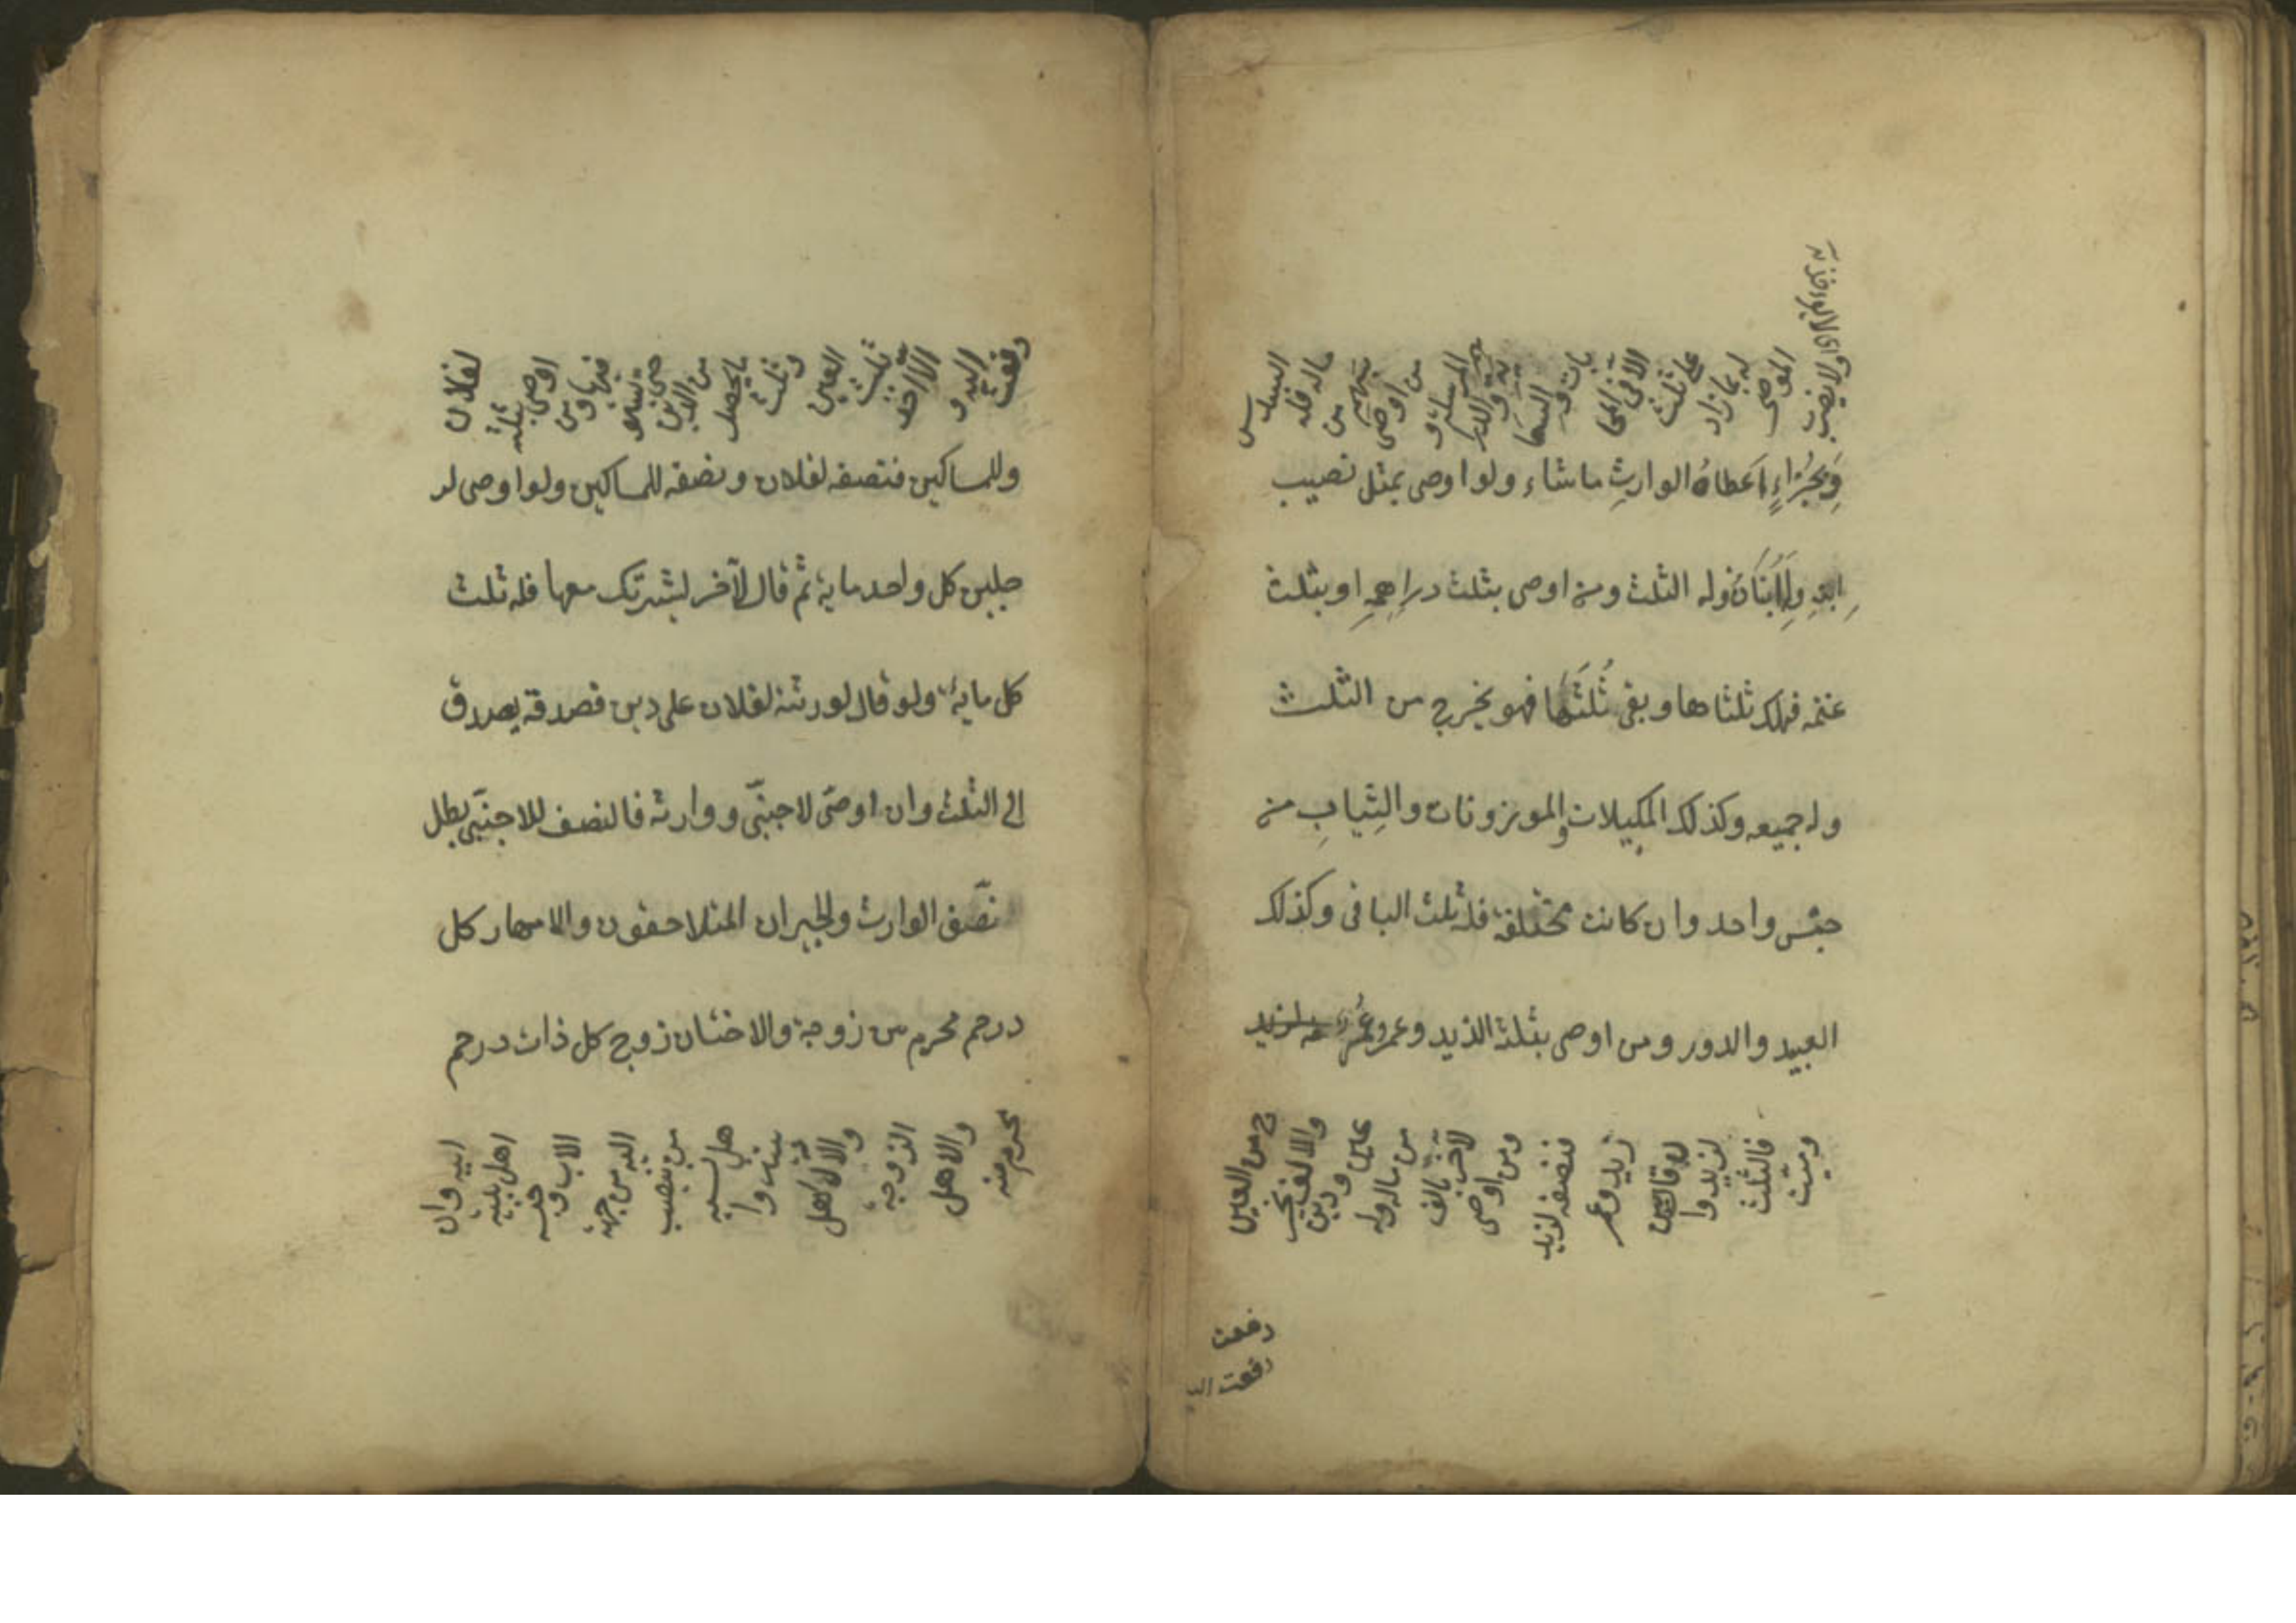 ولا يضرب
الموصى
له بما زاد
على ثلث
الا فى المحا
بات و
السعا
ية و الدر
اهم المرسلة و
من اوصى
بسهم
من
ماله فله
السدس
وبجزاءٍ اعطاهُ الوارثِ ما شاء ولو اوصى بمثل نصيب
ابنهِ ولهُ ابنَان فله الثلث ومن اوصى بثلث دراهمهِ او بثلث
غنمه فهلك ثلثاها وبقى ثُلثَها فهو يخرج من الثلث
وله جميعه وكذلك المكيلات والموزونات والثِيابِ من
جنس واحد وان كانت مختلفة فله ثلث الباقى وكذلك
العبيد والدور ومن اوصى بثلثه لزيد وعمرو
وميّت
فالثلث
لزيد وا
ن قال بين
زيد وعمر
فنصفه لزيد
ومن اوصى
لاخر بالف
من ماله وله
عين ودين
والالف يخر
ج من العين
دفعت
دفعت اليه
دفعت
اليه و
الا اخذ
ثلث
العين
وثلث
ما يحصل
من الدين
حتى يستوفى
فيها ومن
اوصى بثلثه
لفلان
وللمساكين فنصفه لفلان ونصفه للمساكين ولو اوصى لر
جلين كل واحد ماية ثم قال لآخر ليشترك معها فله ثلث
كل ماية ولو قال لورثته لفلان على دين فصدقه يصدق
الى الثلث وان اوصىّ لاجنبّى ووارثه فالنصف للاجنبّى بطل
نصّف الوارث والجيران المتلاصقون والاصهار كل
ذ رحم محرم من زوجة والاختان زوج كل ذات رحم
محرم منه
والاهل
الزوجة
و الال اهل
بيته و ا
هل نسبه
من ينصب
اليه من جهة
الاب و جنسه
اهل بيت
ابيه وان